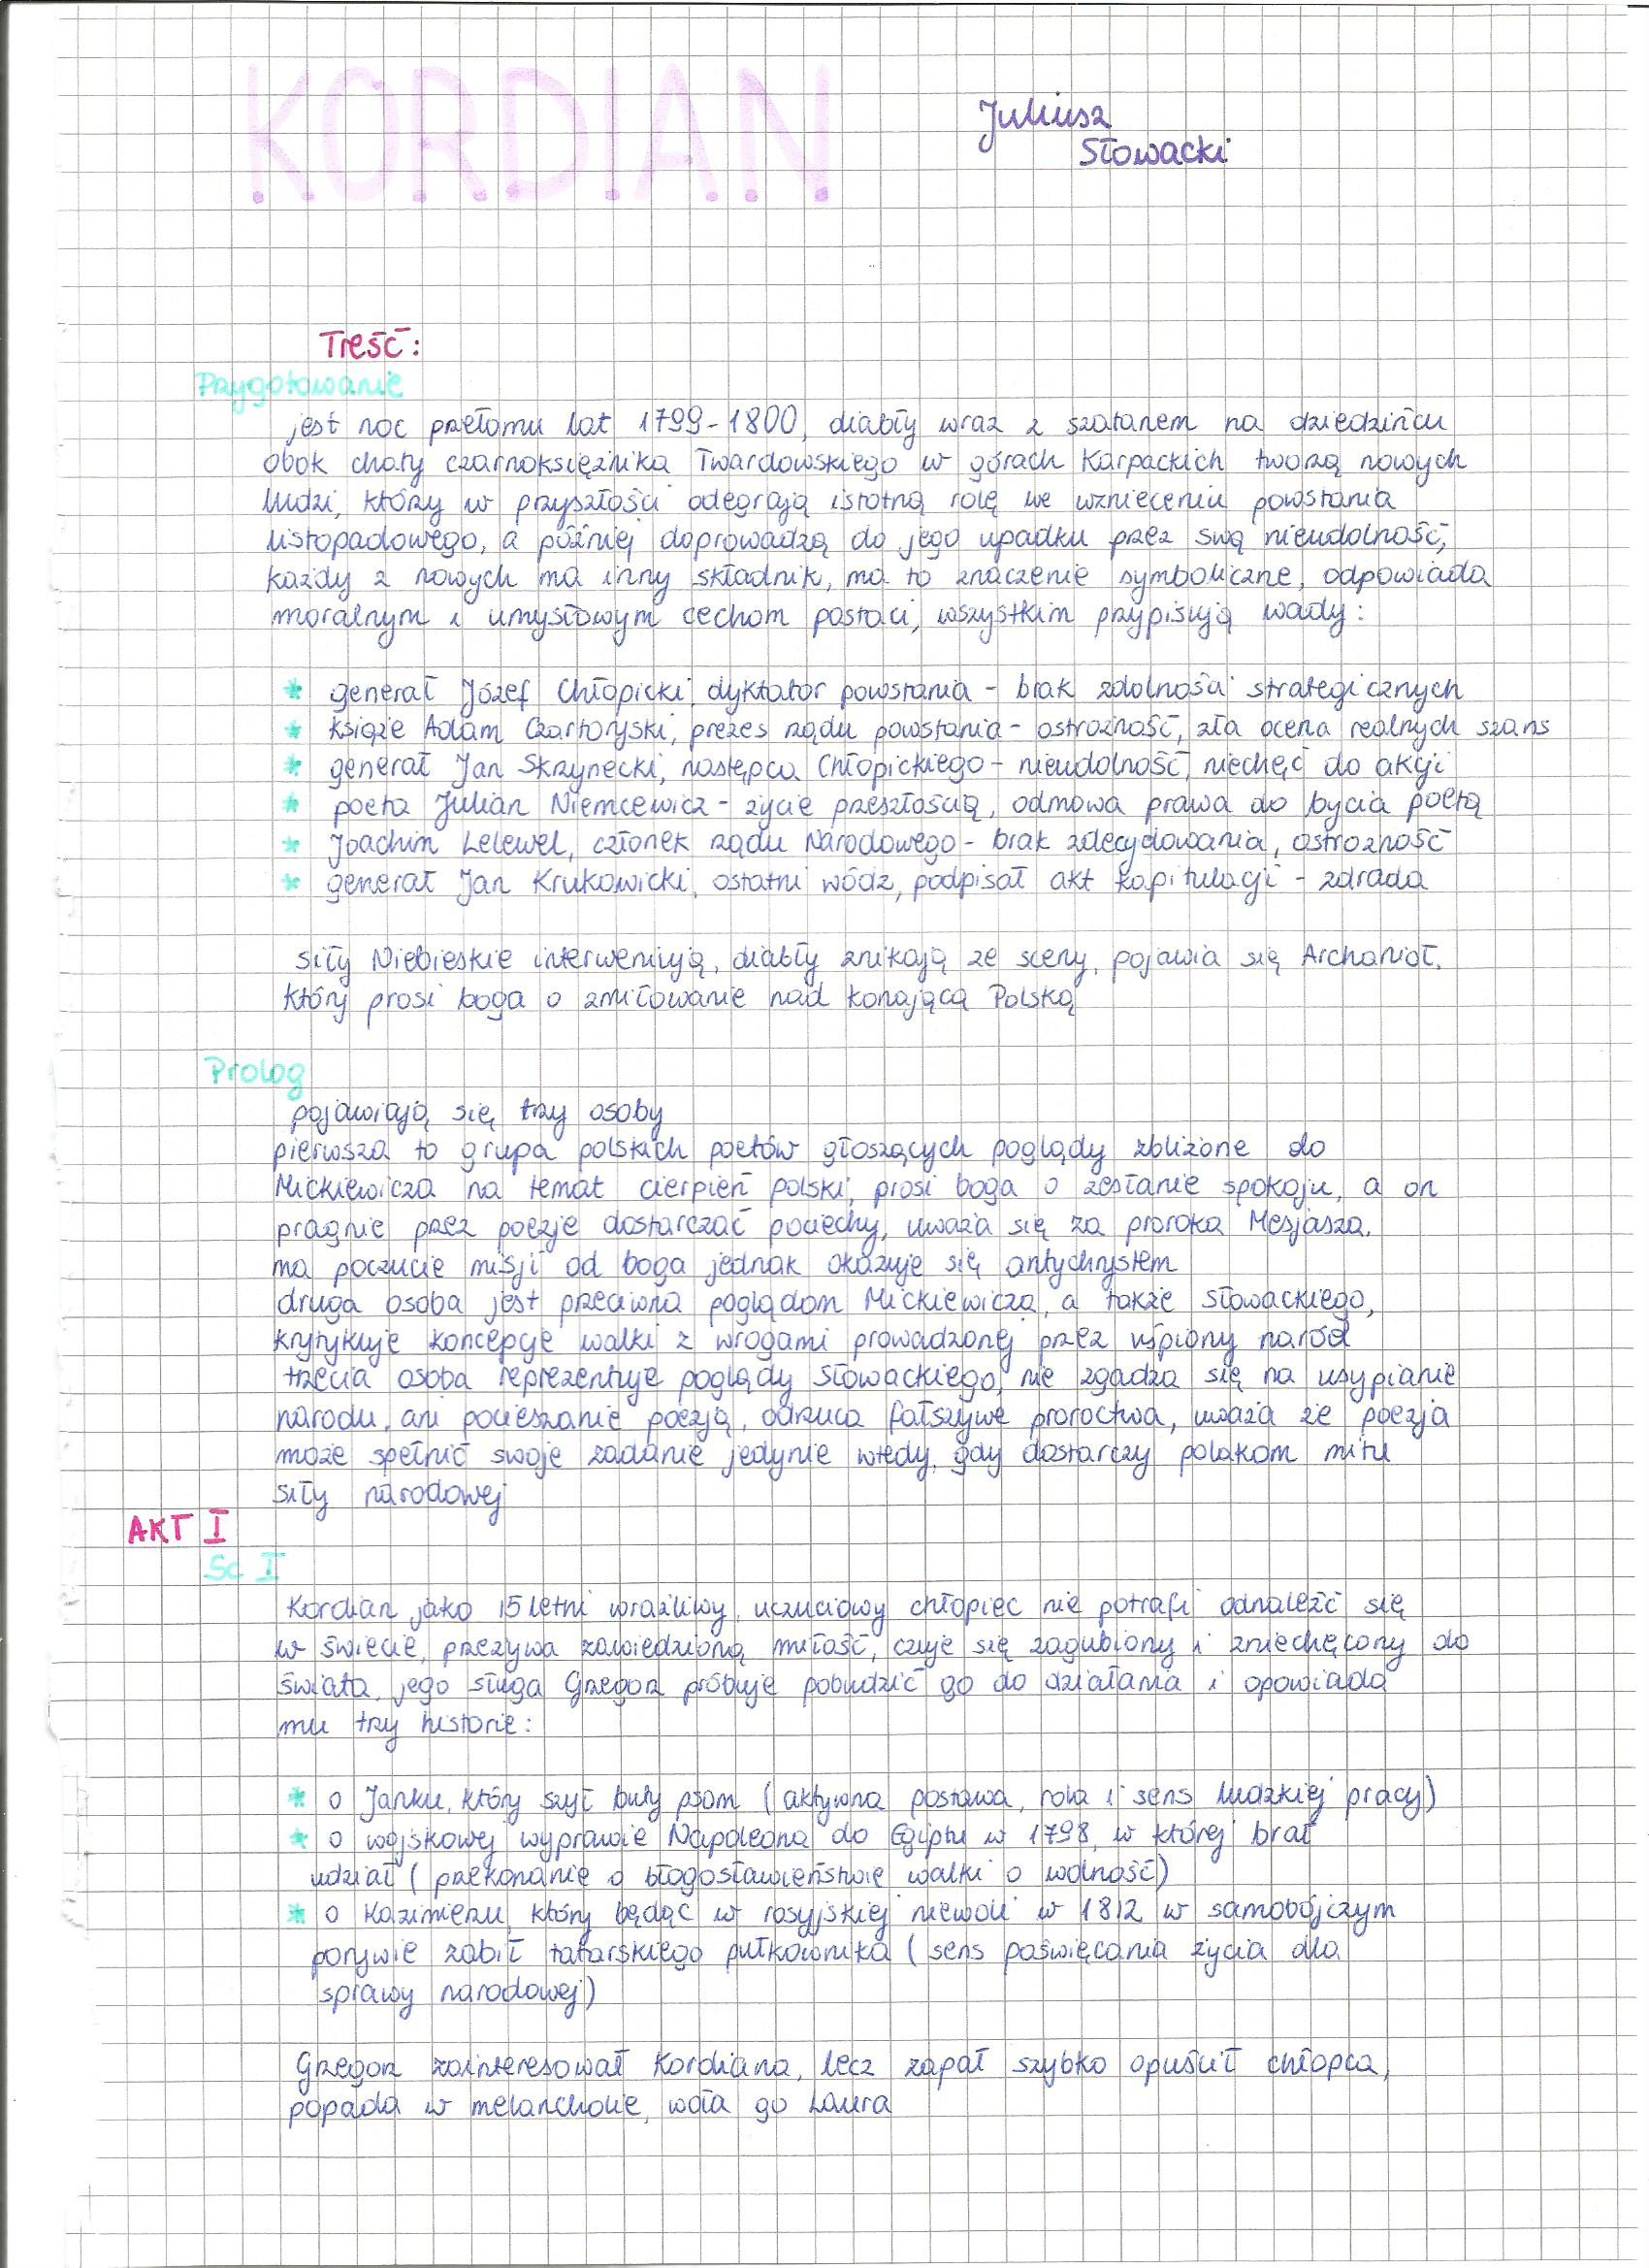 KORDIAN
Juliusz
Słowacki
Treść:
Przygotowanie
jest noc przełomu lat 1799-1800, diabły wraz z szatanem na dziedzińcu
obok chaty czarnoksiężnika Twardowskiego w górach Karpackich tworzą nowych
ludzi, którzy w przyszłości odegrają istotną rolę we wznieceniu powstania
listopadowego, a później doprowadzą do jego upadku przez swą nieudolność,
każdy z nowych ma inny składnik, ma to znaczenie symboliczne, odpowiada
moralnym i umysłowym cechom postaci, wszystkim przypisują wady:
* generał Józef Chłopicki, dyktator powstania - brak zdolności strategicznych
* książe Adam Czartoryski, prezes rządu powstania - ostrożność, zła ocena realnych szans
* generał Jan Skrzynecki, następca Chłopickiego - nieudolność, niechęć do akcji
* poeta Julian Niemcewicz - życie przeszłością, odmowa prawa do bycia poetą
* Joachim Lelewel, członek rządu Narodowego - brak zdecydowania, ostrożność
* generał Jan Krukowicki, ostatni wódz, podpisał akt kapitulacji - zdrada
siły Niebieskie interweniują, diabły znikają ze sceny, pojawia się Archanioł,
który prosi boga o zmiłowanie nad konającą Polską
Prolog
pojawiają się trzy osoby
pierwsza to grupa polskich poetów głoszących poglądy zbliżone do
Mickiewicza na temat cierpień polski, prosi boga o zesłanie spokoju, a on
pragnie przez poezje dostarczać pociechy, uważa się za proroka Mesjasza,
ma poczucie misji od boga jednak okazuje się antychrystem
druga osoba jest przeciwna poglądom Mickiewicza, a także Słowackiego,
krytykuje koncepcje walki z wrogami prowadzonej przez uśpiony naród
trzecia osoba reprezentuje poglądy Słowackiego, nie zgadza się na usypianie
narodu, ani pocieszanie poezją, odrzuca fałszywe proroctwa, uważa że poezja
może spełnić swoje zadanie jedynie wtedy, gdy dostarczy polakom mitu
siły narodowej
AKT I
Sc I
Kordian jako 15 letni wrażliwy, uczuciowy chłopiec nie potrafi odnaleźć się
w świecie, przeżywa zawiedzioną miłość, czuje się zagubiony i zniechęcony do
świata, jego sługa Grzegorz próbuje pobudzić go do działania i opowiada
mu trzy historie:
* o Janku, który szył buty psom (aktywna postawa, rola i sens ludzkiej pracy)
* o wojskowej wyprawie Napoleona do Egiptu w 1798, w której brał
udział (przekonanie o błogosławieństwie walki o wolność)
* o Kazimierzu, który będąc w rosyjskiej niewoli w 1812 w samobójczym
porywie zabił tatarskiego pułkownika (sens poświęcania życia dla
sprawy narodowej)
Grzegorz zainteresował Kordiana, lecz zapał szybko opuścił chłopca,
popada w melancholie, woła go Laura